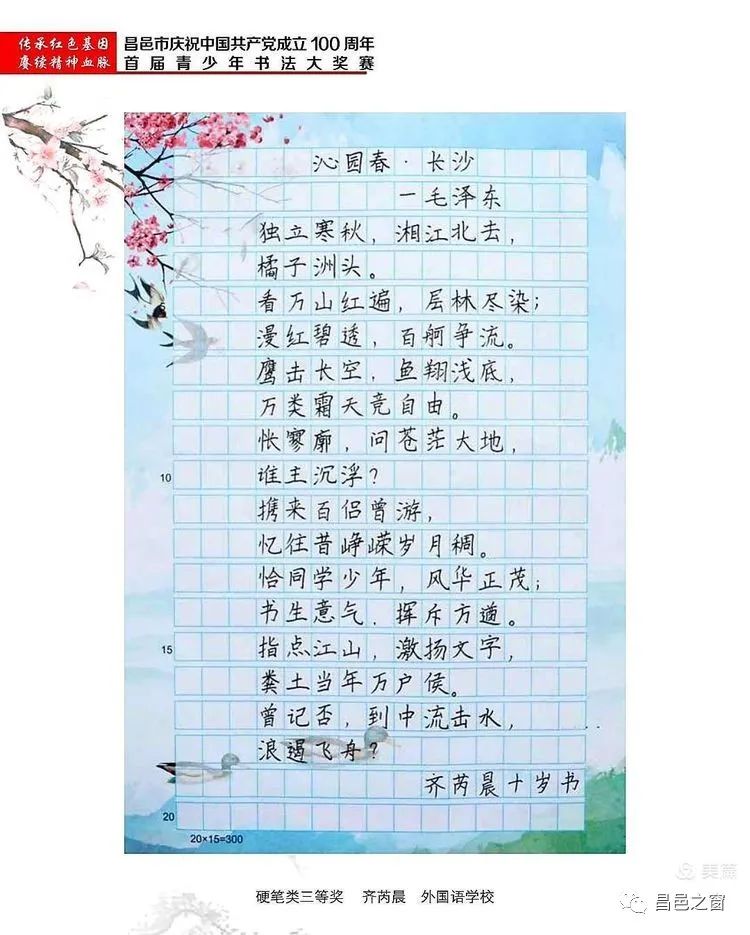 传承红色基因
赓续精神血脉
昌邑市庆祝中国共产党成立100周年
首届青少年书法大奖赛
沁园春·长沙
一毛泽东
独立寒秋，湘江北去，
橘子洲头。
看万山红遍，层林尽染；
漫红碧透，百舸争流。
鹰击长空，鱼翔浅底，
万类霜天竞自由。
怅寥廓，问苍茫大地，
谁主沉浮？
10
携来百侣曾游，
忆往昔峥嵘岁月稠。
恰同学少年，风华正茂；
书生意气，挥斥方遒。
15
指点江山，激扬文字，
粪土当年万户侯。
曾记否，到中流击水，
浪遏飞舟？
齐芮晨十岁书
20
20×15=300
硬笔类三等奖 齐芮晨 外国语学校
美篇
昌邑之窗